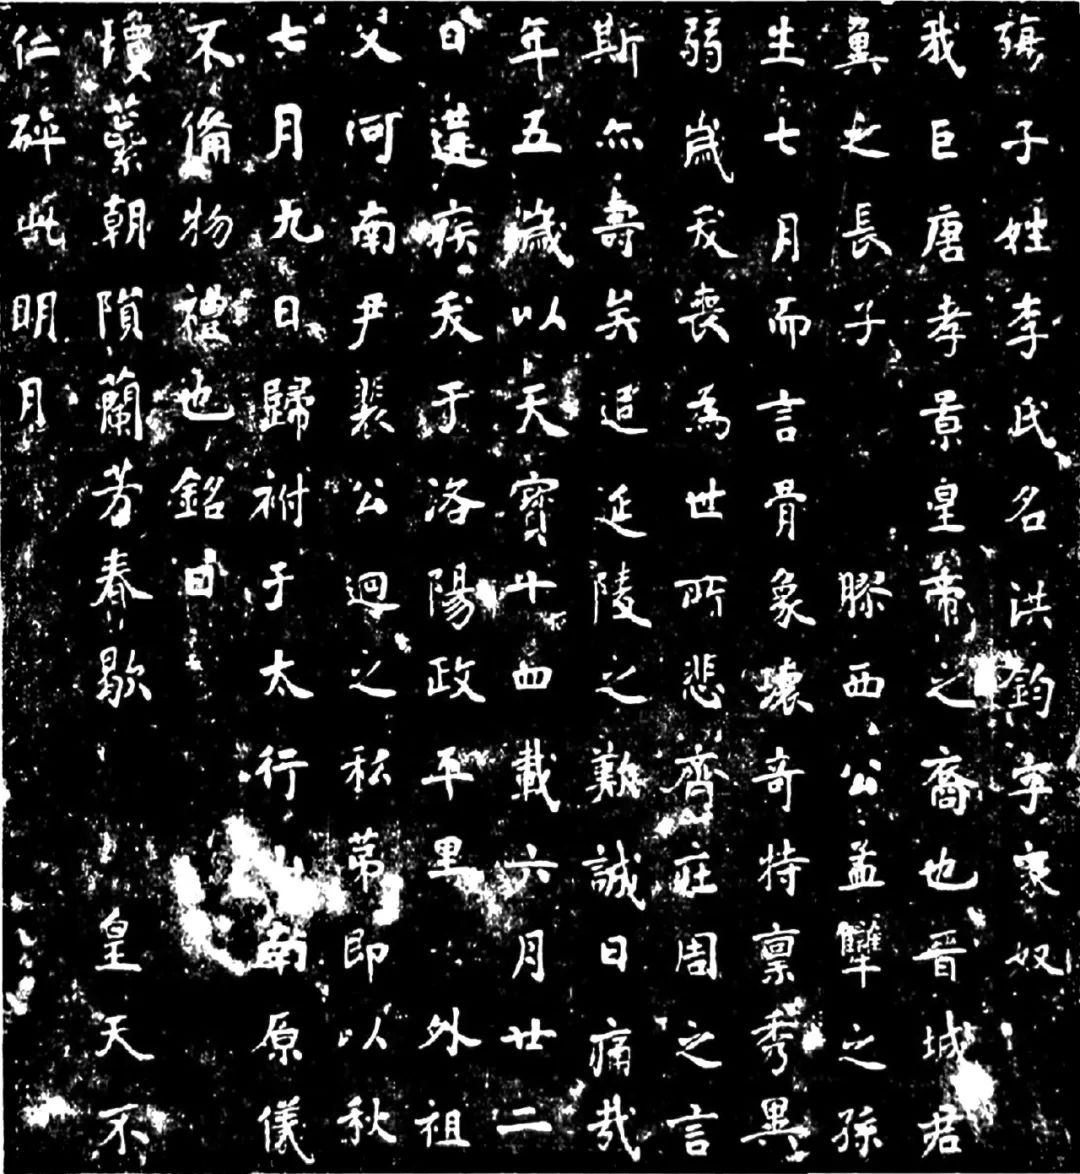 殤子姓李氏名洪鈞字家奴
我巨唐孝景皇帝之裔也晉城君
冀之長子 膠西公孟犨之孫
生七月而言骨象壞奇特禀秀異
弱歲夭喪為世所悲齊莊周之言
斯亦壽矣追延陵之難誠曰痛哉
年五歲以天寶十四載六月廿二
日遘疾夭于洛陽政平里 外祖
父河南尹裴公迥之私第即以秋
七月九日歸祔于太行山南原儀
不備物禮也銘曰
瓊蘂朝隕蘭芳春歇 皇天不
仁碎此明月